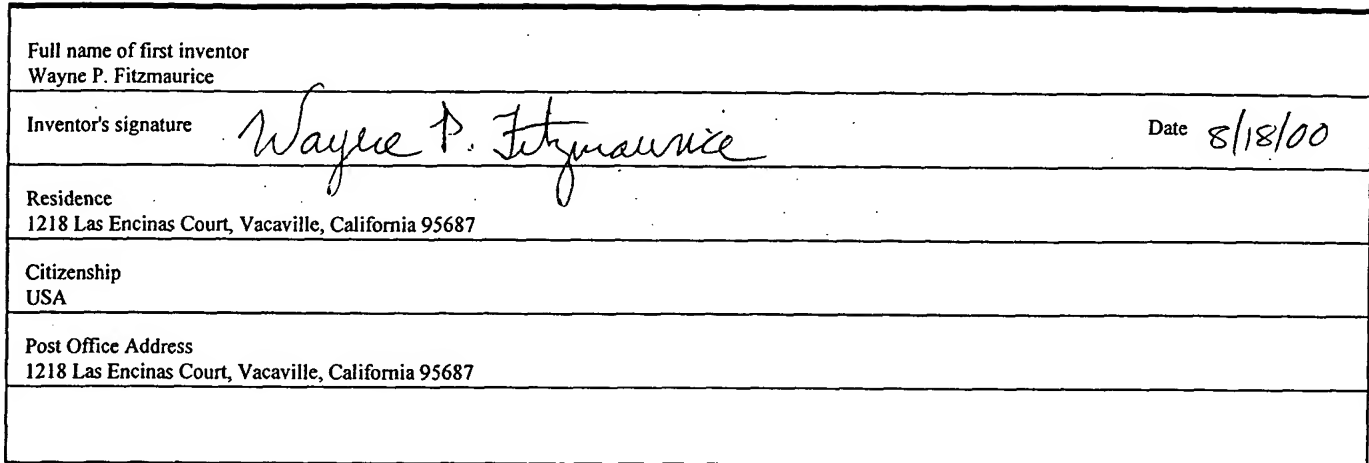 Full name of first inventor
Wayne P. Fitzmaurice
Inventor's signature Wayne P. Fitzmaurice Date 8/18/00
Residence
1218 Las Encinas Court, Vacaville, California 95687
Citizenship
USA
Post Office Address
1218 Las Encinas Court, Vacaville, California 95687